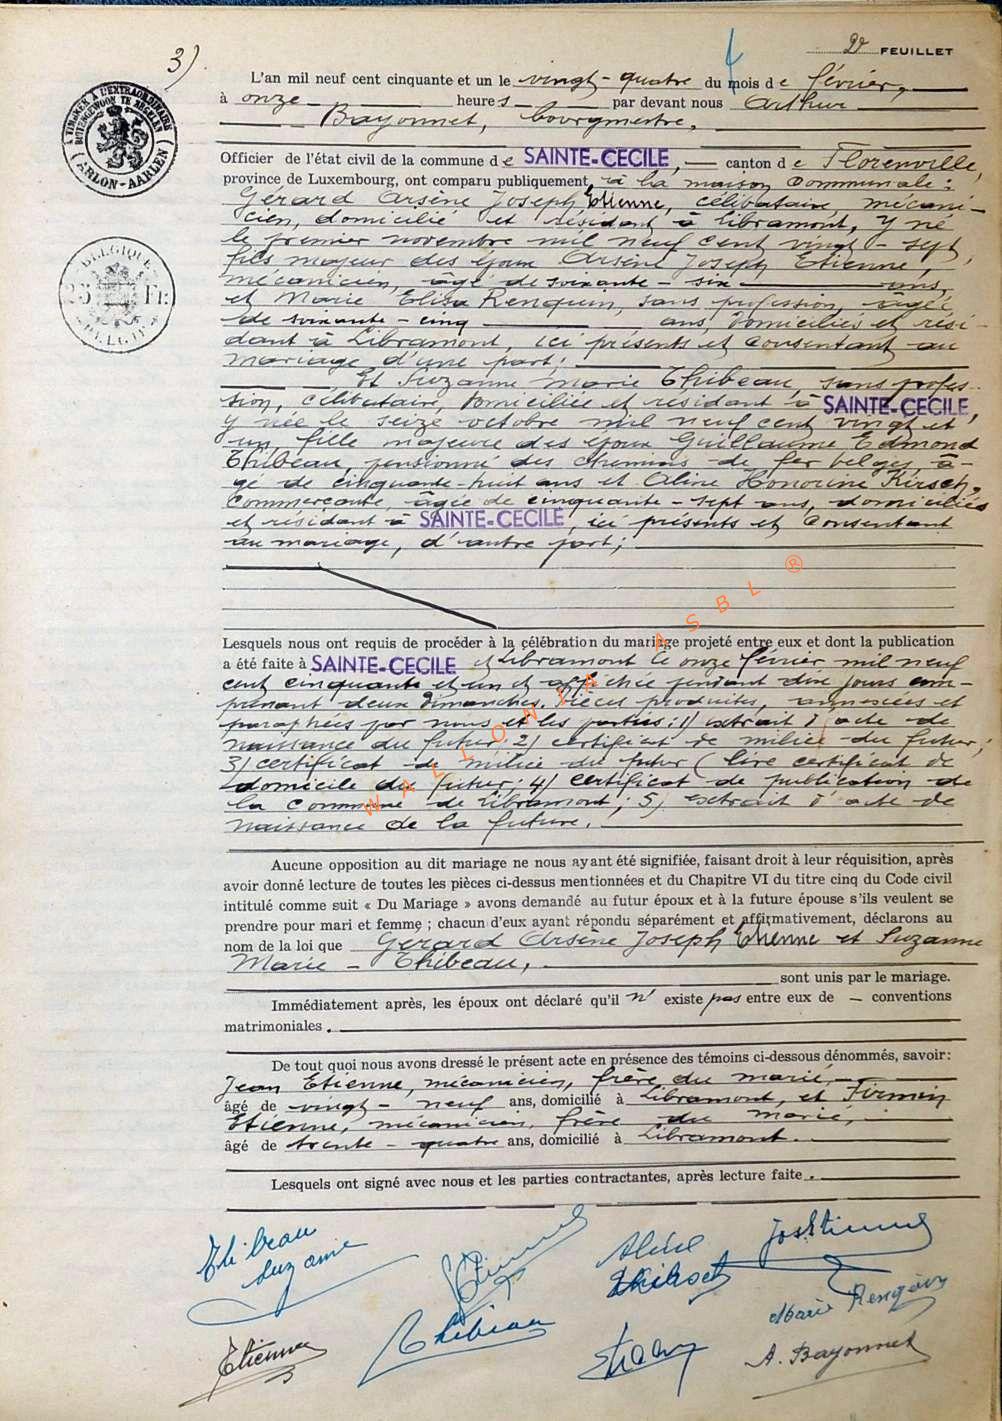 3)
2e FEUILLET
L'an mil neuf cent cinquante et un le vingt-quatre du mois de février,
à onze heures par devant nous Arthur
Bayonnet, bourgmestre,
Officier de l'état civil de la commune de SAINTE-CECILE, canton de Florenville,
province de Luxembourg, ont comparu publiquement, à la maison communale:
Gérard Arsène Joseph Etienne, célibataire, mécani-
cien, domicilié et résidant à Libramont, y né
le premier novembre mil neuf cent vingt-sept,
fils majeur des époux Arsène Joseph Etienne,
mécanicien, âgé de soixante-six ans,
et Marie Elisa Renquin, sans profession, âgée
de soixante-cinq ans, domiciliés et rési-
dant à Libramont, ici présents et consentant au
mariage d'une part;
Et Suzanne Marie Thibeau, sans profes-
sion, célibataire, domiciliée et résidant à SAINTE-CECILE,
y née le seize octobre mil neuf cent vingt et
un, fille majeure des époux Guillaume Edmond
Thibeau, pensionné des chemins de fer belges, â-
gé de cinquante-huit ans et Aline Honorine Kirsch,
commerçante, âgée de cinquante-sept ans, domiciliés
et résidant à SAINTE-CECILE, ici présents et consentant
au mariage, d'autre part;
Lesquels nous ont requis de procéder à la célébration du mariage projeté entre eux et dont la publication
a été faite à SAINTE-CECILE et Libramont le onze février mil neuf
cent cinquante et un et affichée pendant dix jours com-
prenant deux dimanches. Pièces produites, annexées et
paraphées par nous et les parties: 1) extrait d'acte de
naissance du futur; 2) certificat de milice du futur;
3) certificat de milice du futur (lire certificat de
domicile du futur; 4) certificat de publication de
la commune de Libramont; 5) extrait d'acte de
naissance de la future.
Aucune opposition au dit mariage ne nous ayant été signifiée, faisant droit à leur réquisition, après
avoir donné lecture de toutes les pièces ci-dessus mentionnées et du Chapitre VI du titre cinq du Code civil
intitulé comme suit « Du Mariage » avons demandé au futur époux et à la future épouse s'ils veulent se
prendre pour mari et femme ; chacun d'eux ayant répondu séparément et affirmativement, déclarons au
nom de la loi que Gérard Arsène Joseph Etienne et Suzanne
Marie Thibeau,
sont unis par le mariage.
Immédiatement après, les époux ont déclaré qu'il n'existe pas entre eux de conventions
matrimoniales.
De tout quoi nous avons dressé le présent acte en présence des témoins ci-dessous dénommés, savoir:
Jean Etienne, mécanicien, frère du marié,
âgé de vingt-neuf ans, domicilié à Libramont, et Firmin
Etienne, mécanicien, frère du marié,
âgé de trente-quatre ans, domicilié à Libramont.
Lesquels ont signé avec nous et les parties contractantes, après lecture faite.
Thibeau
Suzanne
Marie Renquin
Etienne
Thibeau
A. Bayonnet
ARLON-AARLEN
BELGIQUE
25 Fr.
BELGIE
WALLONIA ASBL ®